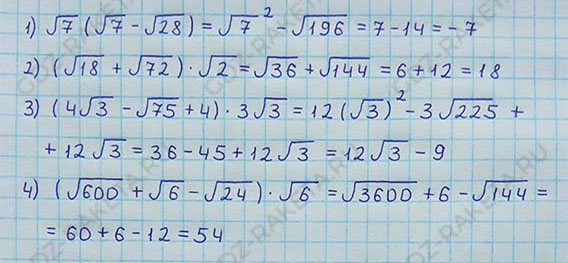 1) √7 (√7 - √28) = √7² - √196 = 7 - 14 = - 7
2) (√18 + √72) · √2 = √36 + √144 = 6 + 12 = 18
3) (4√3 - √75 + 4) · 3√3 = 12 (√3)² - 3√225 +
+ 12√3 = 36 - 45 + 12√3 = 12√3 - 9
4) (√600 + √6 - √24) · √6 = √3600 + 6 - √144 =
= 60 + 6 - 12 = 54